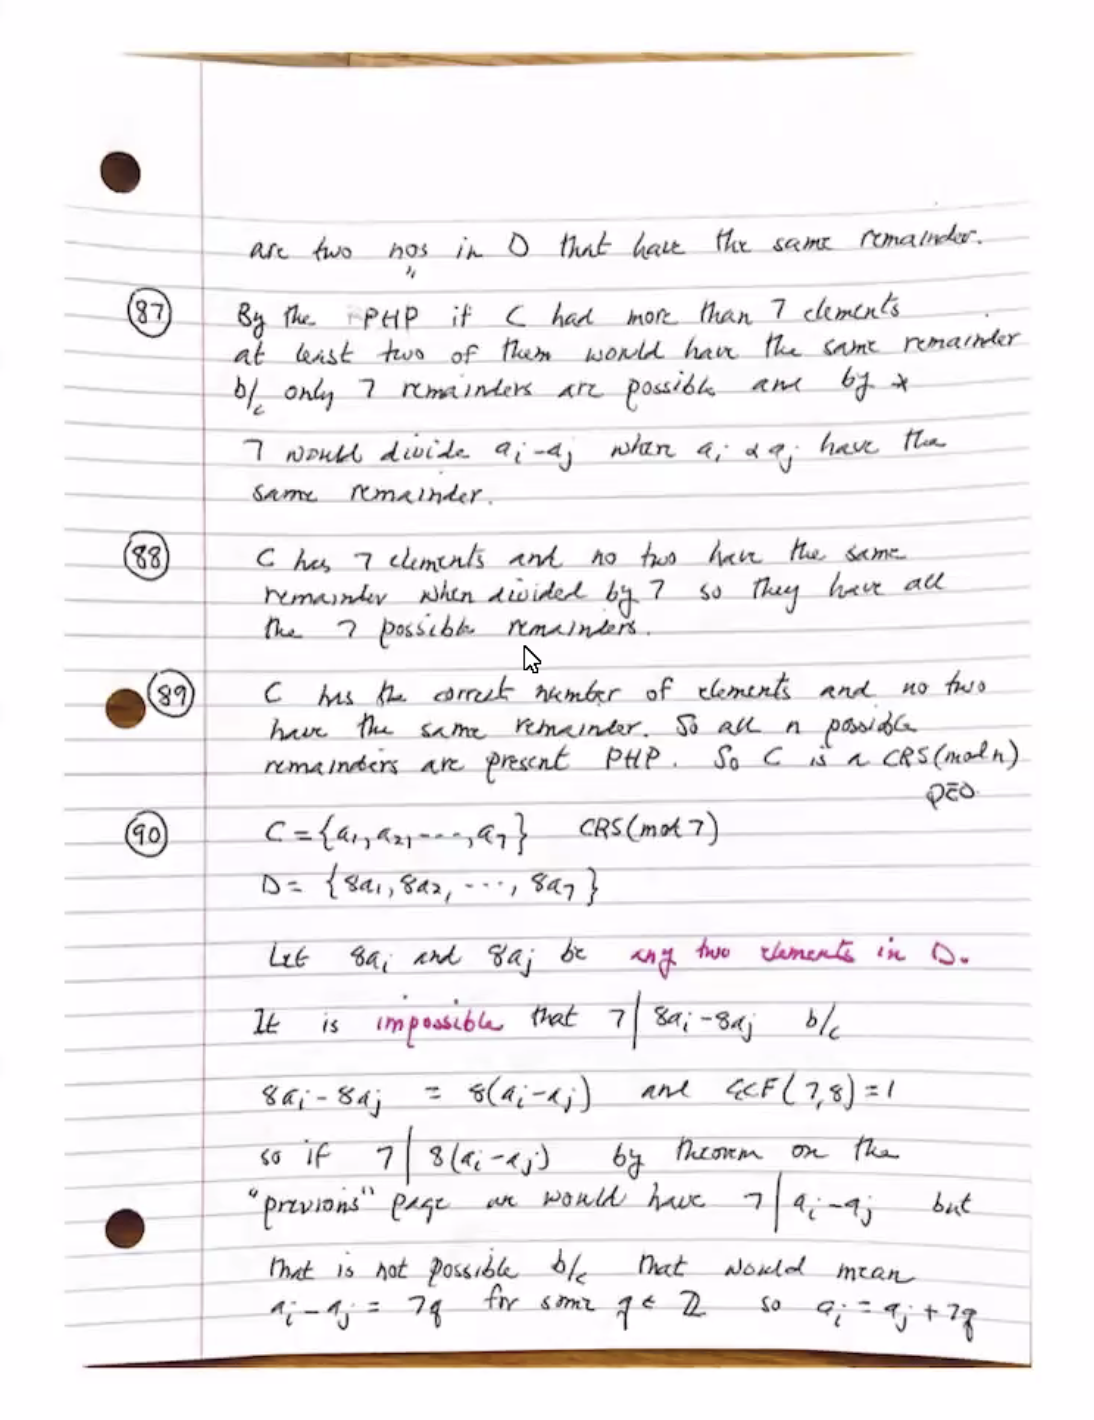 are two nos in D that have the same remainder.
"
87 By the PHP if C had more than 7 elements
at least two of them would have the same remainder
b/c only 7 remainders are possible and by *
7 would divide ai-aj where ai & aj have the
same remainder.
88 C has 7 elements and no two have the same
remainder when divided by 7 so they have all
the 7 possible remainders.
89 C has the correct number of elements and no two
have the same remainder. So all n possible
remainders are present PHP. So C is a CRS(mod n)
QED
90 C = {a1, a2, ----, a7} CRS(mod 7)
D = {8a1, 8a2, ---, 8a7}
Let 8ai and 8aj be any two elements in D.
It is impossible that 7 | 8ai-8aj b/c
8ai - 8aj = 8(ai-aj) and GCF(7,8)=1
so if 7 | 8(ai-aj) by theorem on the
"previous" page we would have 7 | ai-aj but
that is not possible b/c that would mean
ai-aj = 7q for some q ∈ ℤ so ai = aj + 7q